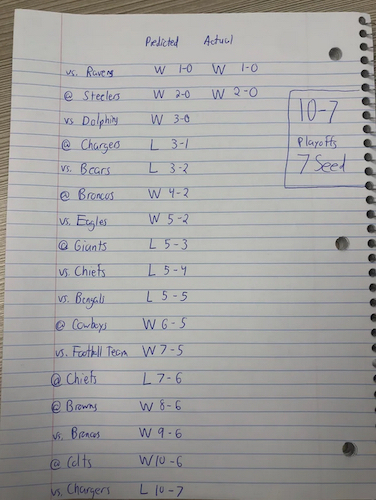 Predicted Actual
vs. Ravens W 1-0 W 1-0
@ Steelers W 2-0 W 2-0
vs Dolphins W 3-0
@ Chargers L 3-1
vs. Bears L 3-2
@ Broncos W 4-2
vs. Eagles W 5-2
@ Giants L 5-3
vs. Chiefs L 5-4
vs. Bengals L 5-5
@ Cowboys W 6-5
vs. Football Team W 7-5
@ Chiefs L 7-6
@ Browns W 8-6
vs. Broncos W 9-6
@ Colts W 10-6
vs. Chargers L 10-7
10-7
Playoffs
7 Seed